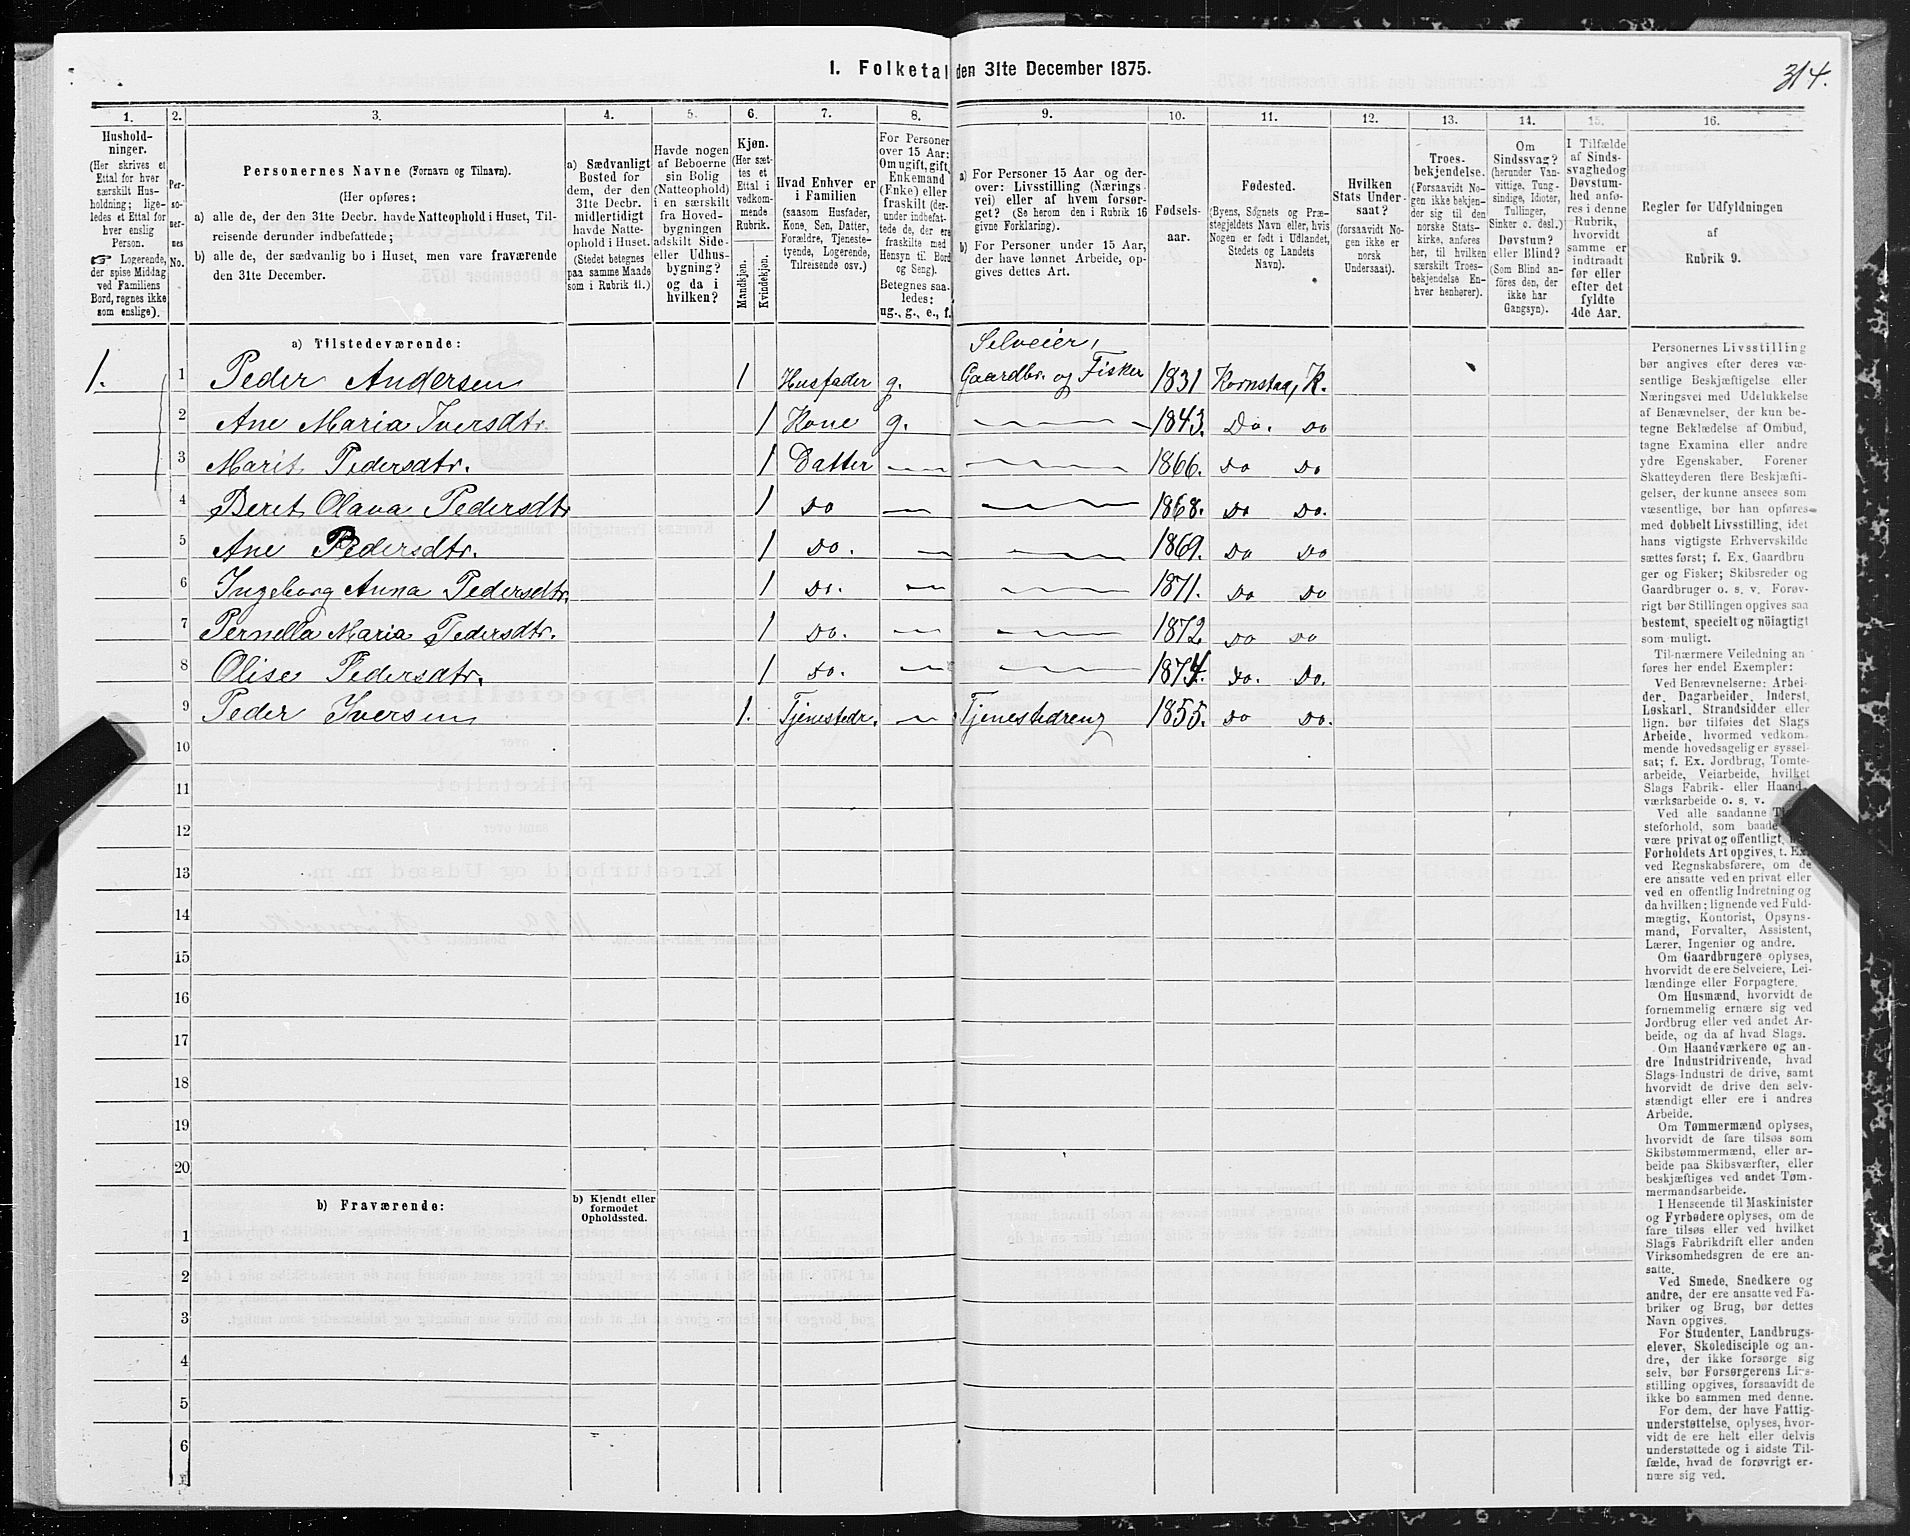 1. Folketal den 31te December 1875.
314.
1.
Hushold-
ninger.
(Her skrives et
Ettal for hver
særskilt Hus-
holdning; lige-
ledes et Ettal for
hver enslig
Person.
☞ Logerende,
der spise Middag
ved Familiens
Bord, regnes ikke
som enslige).
2.
Per-
so-
ner-
nes
No.
3.
Personernes Navne (Fornavn og Tilnavn).
(Her opføres:
a) alle de, der den 31te Decbr. havde Natteophold i Huset, Til-
reisende derunder indbefattede;
b) alle de, der sædvanlig bo i Huset, men vare fraværende
den 31te December.
4.
a) Sædvanligt
Bosted for
dem, der den
31te Decbr.
midlertidigt
havde Natte-
ophold i Huset.
(Stedet betegnes
paa samme Maade
som i Rubrik 11.)
5.
Havde nogen
af Beboerne
sin Bolig
(Natteophold)
i en særskilt
fra Hoved-
bygningen
adskilt Side-
eller Udhus-
bygning?
og da i
hvilken?
6.
Kjøn.
(Her sæt-
tes et
Ettal i
vedkom-
mende
Rubrik.
Mandkjøn.
Kvindekjøn.
7.
Hvad Enhver er
i Familien
(saasom Husfader,
Kone, Søn, Datter,
Forældre, Tjeneste-
tyende, Logerende,
Tilreisende osv.)
8.
For Personer
over 15 Aar:
Om ugift, gift,
Enkemand
(Enke) eller
fraskilt (der-
under indbefat-
tede de, der ere
fraskilte med
Hensyn til Bord
og Seng).
Betegnes saa-
ledes:
ug., g., e., f.
9.
a) For Personer 15 Aar og der-
over: Livsstilling (Nærings-
vei) eller af hvem forsør-
get? (Se herom den i Rubrik 16
givne Forklaring).
b) For Personer under 15 Aar,
der have lønnet Arbeide, op-
gives dettes Art.
10.
Fødsels-
aar.
11.
Fødested.
(Byens, Sognets og Præ-
stegjeldets Navn eller, hvis
Nogen er født i Udlandet,
Stedets og Landets
Navn).
12.
Hvilken
Stats Under-
saat?
(forsaavidt No-
gen ikke er
norsk
Undersaat).
13.
Troes-
bekjendelse.
(Forsaavidt No-
gen ikke bekjen-
der sig til den
norske Stats-
kirke, anføres
her, til hvilken
særskilt Troes-
bekjendelse En-
hver henhører).
14.
Om
Sindssvag?
(herunder Van-
vittige, Tung-
sindige, Idioter,
Tullinger,
Sinker o. desl.)
Døvstum?
eller Blind?
(Som Blind an-
føres den, der
ikke har
Gangsyn).
15.
I Tilfælde
af Sinds-
svaghed og
Døvstum-
hed anfø-
res i denne
Rubrik,
hvorvidt
samme er
indtraadt
før eller
efter det
fyldte
4de Aar.
16.
Regler for Udfyldningen
af
Rubrik 9.
a) Tilstedeværende:
Selveier,
1. 1 Peder Andersen 1 Husfader g. Gaardbr. og Fisker 1831 Kornstad, K.
2 Ane Maria Iversdtr. 1 Kone g. 1843. Do. Do
3 Marit Pedersdtr. 1 Datter 1866. Do Do
4 Beret Olava Pedersdtr 1 Do 1868. Do Do.
5 Ane Pedersdtr. 1 Do. 1869. Do Do
6 Ingeborg Anna Pedersdtr. 1 Do. 1871. Do Do
7 Pernella Maria Pedersdtr. 1 Do. 1872 Do Do
8 Olise Pedersdtr. 1 Do. 1874. Do. Do.
9 Peder Iversen 1. Tjenestedr. Tjenestedreng 1855. Do Do.
10
11
12
13
14
15
16
17
18
19
20
b) Fraværende:
b) Kjendt eller
formodet
Opholdssted.
1
2
3
4
5
6
Personernes Livsstilling
bør angives efter deres væ-
sentlige Beskjæftigelse eller
Næringsvei med Udelukkelse
af Benævnelser, der kun be-
tegne Beklædelse af Ombud,
tagne Examina eller andre
ydre Egenskaber. Forener
Skatteyderen flere Beskjæfti-
gelser, der kunne ansees som
væsentlige, bør han opføres
med dobbelt Livsstilling, idet
hans vigtigste Erhvervskilde
sættes først; f. Ex. Gaardbru
ger og Fisker; Skibsreder og
Gaardbruger o. s. v. Forøv-
rigt bør Stillingen opgives saa
bestemt, specielt og nøiagtigt
som muligt.
Til-nærmere Veiledning an
føres her endel Exempler:
Ved Benævnelserne: Arbei-
der, Dagarbeider, Inderst,
Løskarl, Strandsidder eller
lign. bør tilføies det Slags
Arbeide, hvormed vedkom
mende hovedsagelig er syssel-
sat; f. Ex. Jordbrug, Tomte-
arbeide, Veiarbeide, hvilket
Slags Fabrik- eller Haand-
værksarbeide o. s. v.
Ved alle saadanne
steforhold, som baade
være privat og offentligt,
Forholdets Art opgives, t. Ex.
ved Regnskabsførere, om de
ere ansatte ved en privat eller
ved en offentlig Indretning og
da hvilken; lignende ved Fuld-
mægtig, Kontorist, Opsyns-
mand, Forvalter, Assistent,
Lærer, Ingeniør og andre.
Om Gaardbrugere oplyses,
hvorvidt de ere Selveiere, Lei-
lændinge eller Forpagtere.
Om Husmænd, hvorvidt de
fornemmelig ernære sig ved
Jordbrug eller ved andet Ar-
beide, og da af hvad Slags.
Om Haandværkere og an-
dre Industridrivende, hvad
Slags Industri de drive, samt
hvorvidt de drive den selv-
stændigt eller ere i andres
Arbeide.
Om Tømmermænd oplyses,
hvorvidt de fare tilsøs som
Skibstømmermænd, eller ar-
beide paa Skibsværfter, eller
beskjæftiges ved andet Tøm-
mermandsarbeide.
I Henseende til Maskinister
og Fyrbødere oplyses, om de
fare tilsøs eller ved hvilket
Slags Fabrikdrift eller anden
Virksomhedsgren de ere an-
satte.
Ved Smede, Snedkere og
andre, der ere ansatte ved Fa-
briker og Brug, bør dettes
Navn opgives.
For Studenter, Landbrugs-
elever, Skoledisciple og an-
dre, der ikke forsørge sig
selv, bør Forsørgerens Livs-
stilling opgives, forsaavidt de
ikke bo sammen med denne.
For dem, der have Fattig-
understøttelse, oplyses, hvor-
vidt de ere helt eller delvis
understøttede og i sidste Til-
fælde, hvad de forøvrigt er-
nære sig ved.